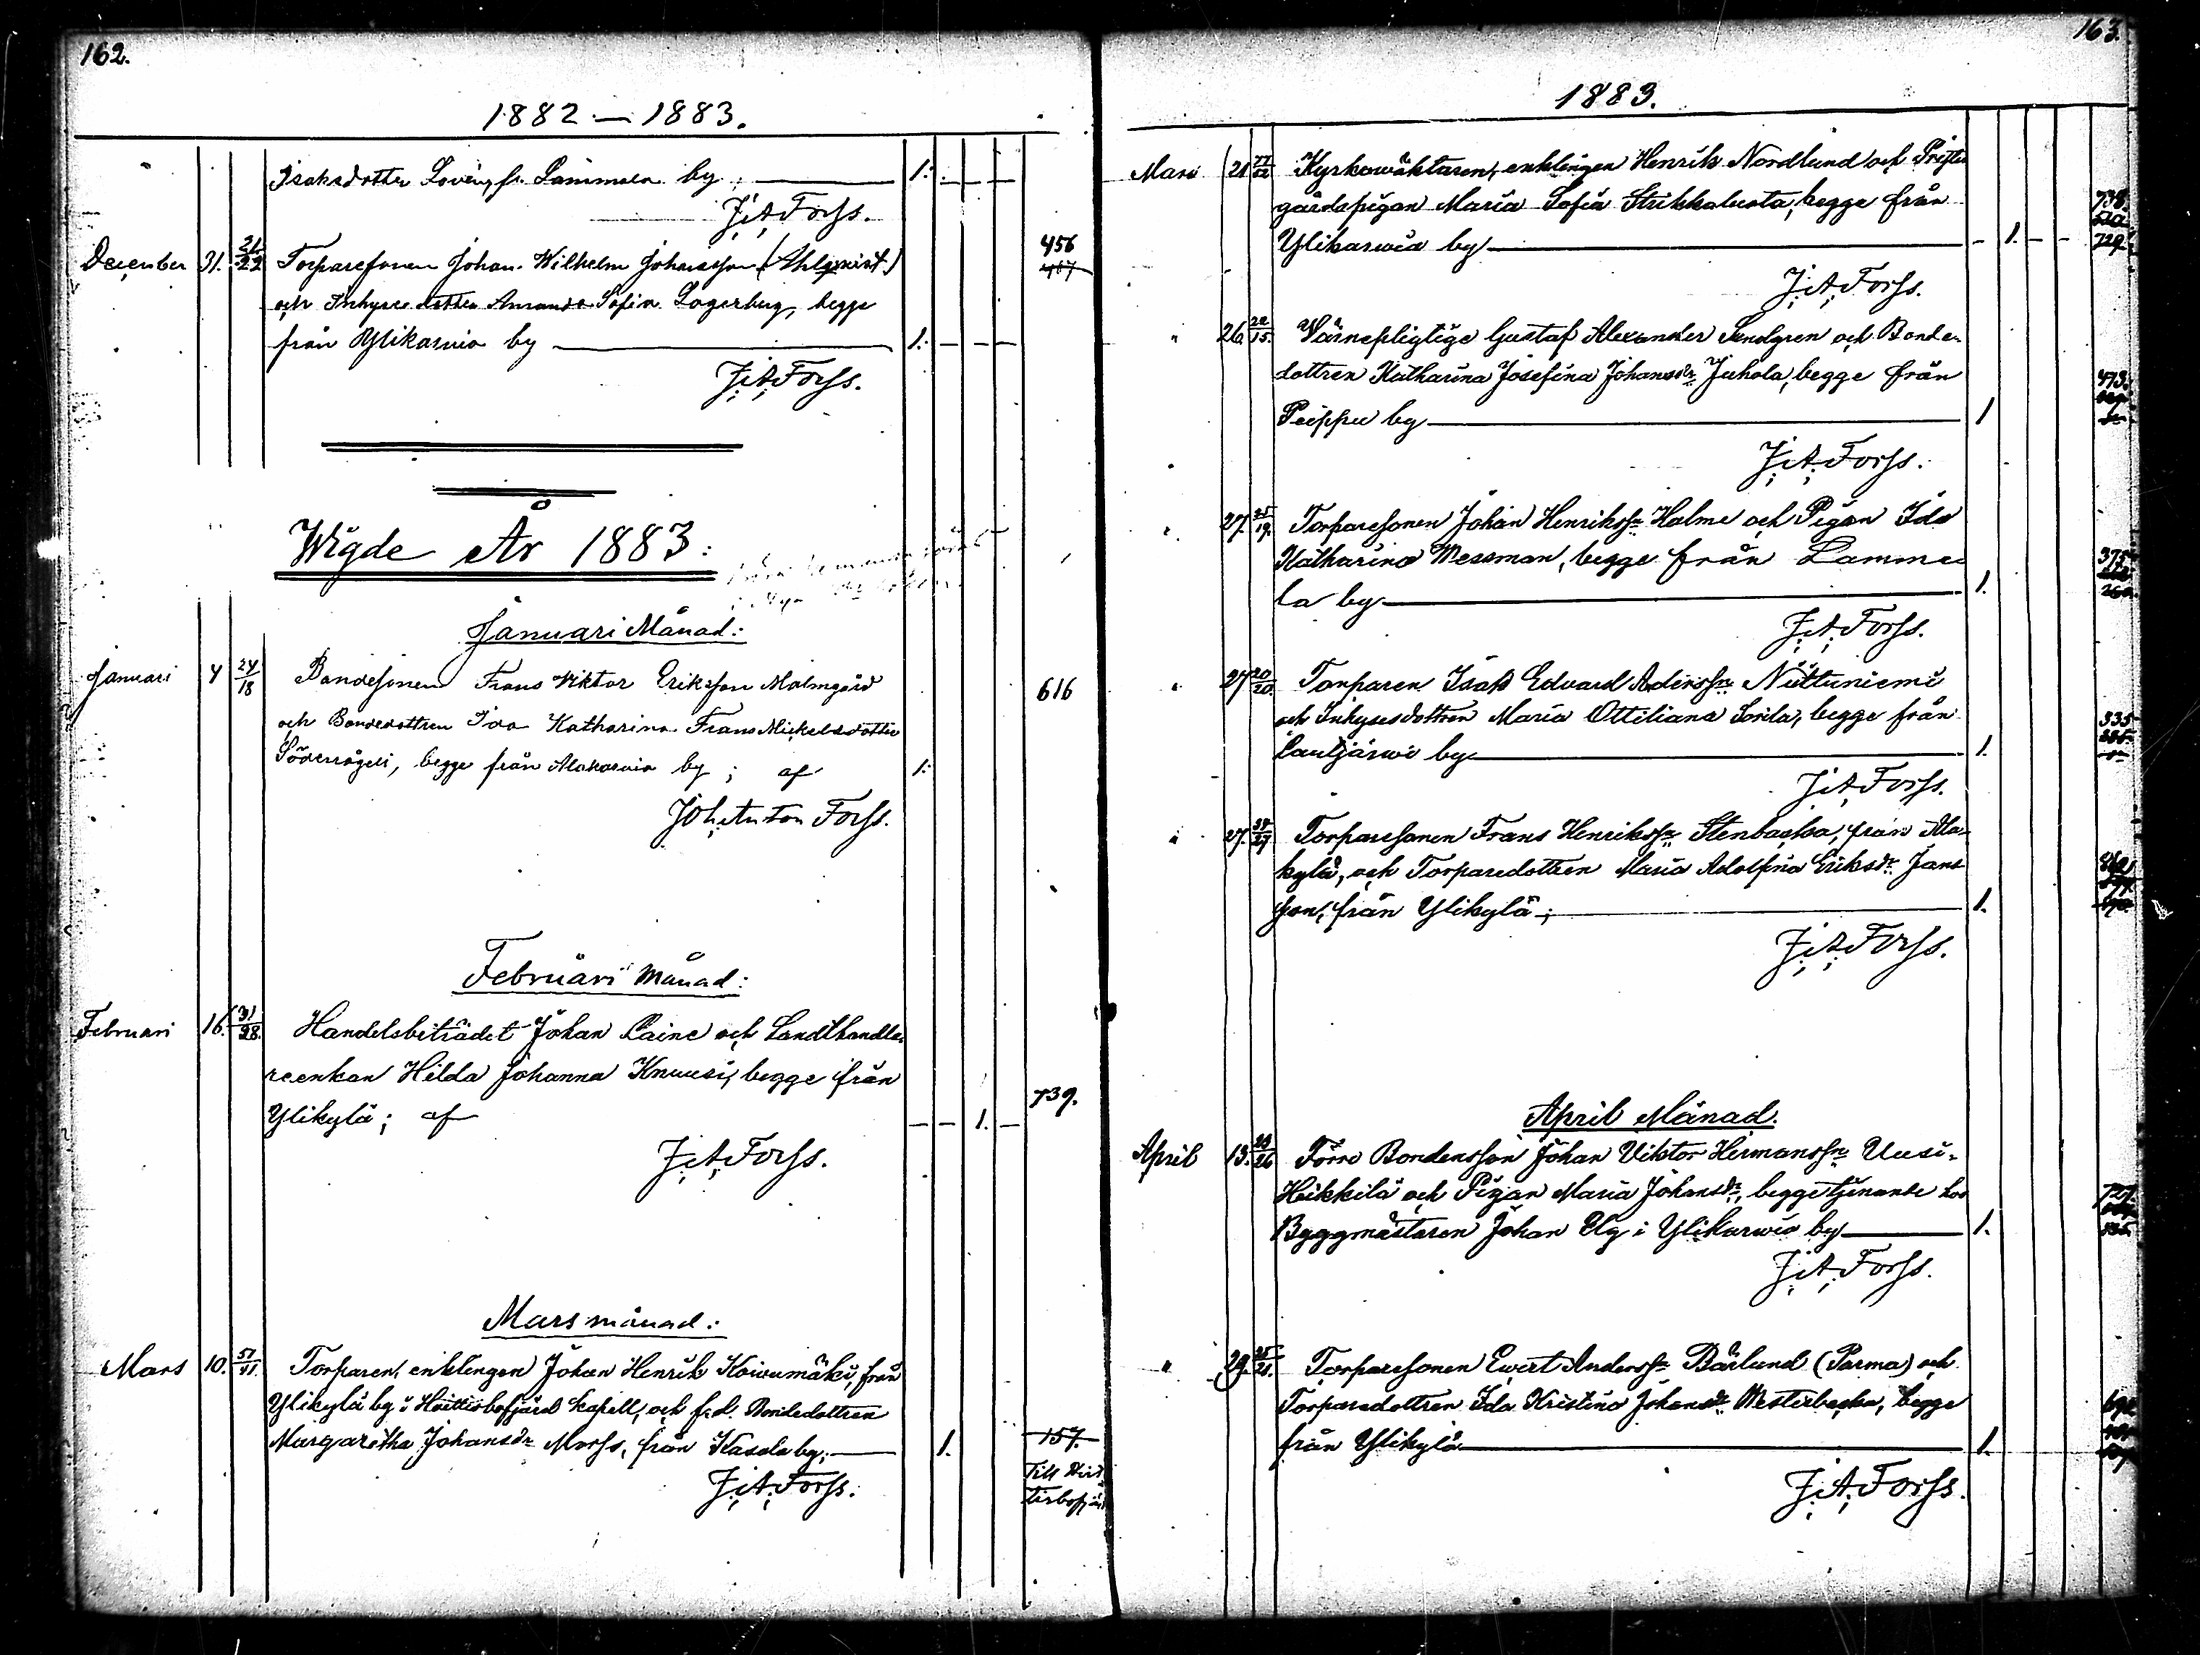 162.
1882 — 1883.
Isaksdotter Lovén, fr. Lammela by; 1.
J. A. Forss.
December 31. 21/22 Torparesonen Johan Wilhelm Johansson (Ahlqvist) 456
och Inhyse dotter Amanda Sofia Lagerberg, begge
från Ylikarvia by 1.
J. A. Forss.
Wigde År 1883:
Januari Månad:
Januari 4 24/18 Bondesonen Frans Viktor Eriksson Malmgård 616
och Bondedottren Ida Katharina Frans Mickelsdotter
begge från Alakarvia by; af 1.
Joh. Anton Forss.
Februari Månad:
Februari 16. 31/28. Handelsbiträdet Johan Laine och Landthandla-
reenkan Hilda Johanna Knuusi, begge från 739.
Ylikylä; af — — 1. —
J. A. Forss.
Mars månad:
Mars 10. 51/41. Torparen, enklingen Johan Henrik Koivumäki, från
Ylikylä by i Hvittisbofjärd kapell, och f.d. Bondedottren
Margaretha Johansdr Morss, från Kasala by; 1. 157.
Till Hvit
tisbofjärd
J. A. Forss.
163.
1883.
Mars 21 Kyrkowäktaren, enklingen Henrik Nordlund och Prest-
gårdspigan Maria Sofia Strikkaluota, begge från 738.
Ylikarwia by — 1. — — 729.
J. A. Forss.
" 26. 22/15. Wärnepligtige Gustaf Alexander Sandgren och Bonde-
dottren Katharina Josefina Johansdr Juhola, begge från 473.
Peippu by 1
J. A. Forss.
" 27. 25/19. Torparesonen Johan Henrikssn Halme och Pigan Ida
Katharina Messman, begge från Lamme- 375
la by 1.
J. A. Forss.
" 27 20/20. Torparen Isak Edvard Anderssn Niittuniemi
och Inhysesdottren Maria Ottiliana Sorila, begge från 335
Lautjärwi by 1.
J. A. Forss.
" 27. Torparesonen Frans Henrikssn Stenbacka, från Ala-
kylä, och Torparedottren Maria Adolfina Eriksdr Jans-
son, från Ylikylä; 1.
J. A. Forss.
April Månad.
April 13. 23/26 Förre Bondensson Johan Viktor Hermanssn Uusi-
Heikkilä och Pigan Maria Johansdr, begge tjenande hos 727.
Byggmästaren Johan Elg i Ylikarwia by 1.
J. A. Forss.
" 29. 25/21. Torparesonen Ewert Anderssn Bärlund (Parma) och
Torparedottren Ida Kristina Johansdr Westerbacka, begge
från Ylikylä 1.
J. A. Forss.